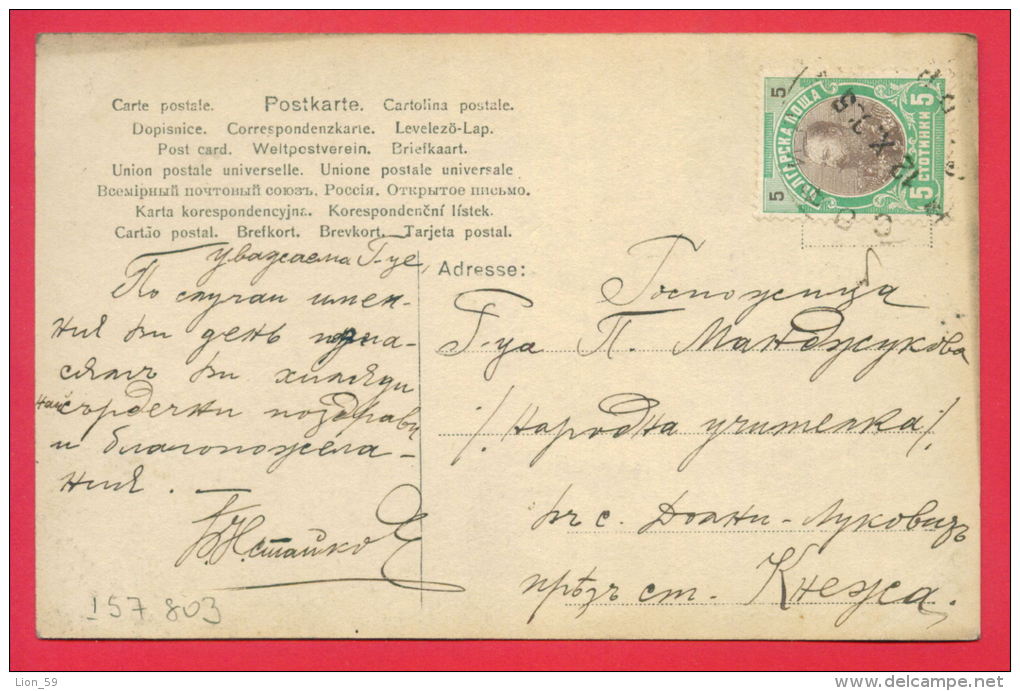 Carte postale. Postkarte. Cartolina postale.
Dopisnice. Correspondenzkarte. Levelező-Lap.
Post card. Weltpostverein. Briefkaart.
Union postale universelle. Unione postale universale
Всемірный почтовый союзъ. Россія. Открытое письмо.
Karta korespondencyjna. Korespondenční lístek.
Cartão postal. Brefkort. Brevkort. Tarjeta postal.
БЪЛГАРСКА ПОЩА
5
5
5 СТОТИНКИ 5
Уважаема Г-це,
По случаи имен-
ния ви день
ви хиляди
най сърдечни поздрави
и благопожела-
ния.
Adresse:
Госпожица
Г-ца П. Манджукова
/Народна учителка/.
въ с. Долни-Луковитъ
прѣзъ ст. Кнежа.
157.803
Lion_59
delcampe.net